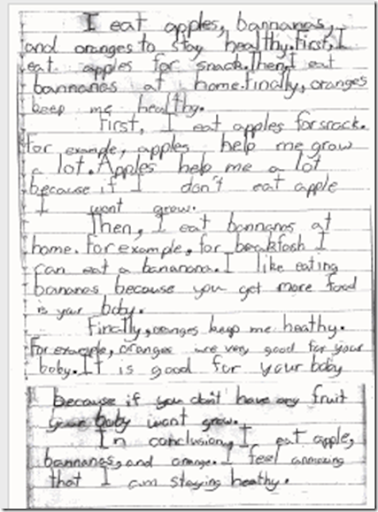 I eat apples, bannanas,
and oranges to stay healthy. First, I
eat apples for snack. Then, I eat
bannanas at home. Finally, oranges
keep me healthy.
First, I eat apples for snack.
For example, apples help me grow
a lot. Apples help me a lot
because if I don't eat apple
I wont grow.
Then, I eat bannans at
home. For example, for breakfash I
can eat a banana. I like eating
bananas because you get more food
is your boby.
Finally, oranges keep me heathy.
For example, oranges are very good for your
boby. It is good for your boby
because if you don't have any fruit
your boby wont grow.
In conclusion, I eat apple,
bannanas, and orange. I feel
that I am staying heathy.